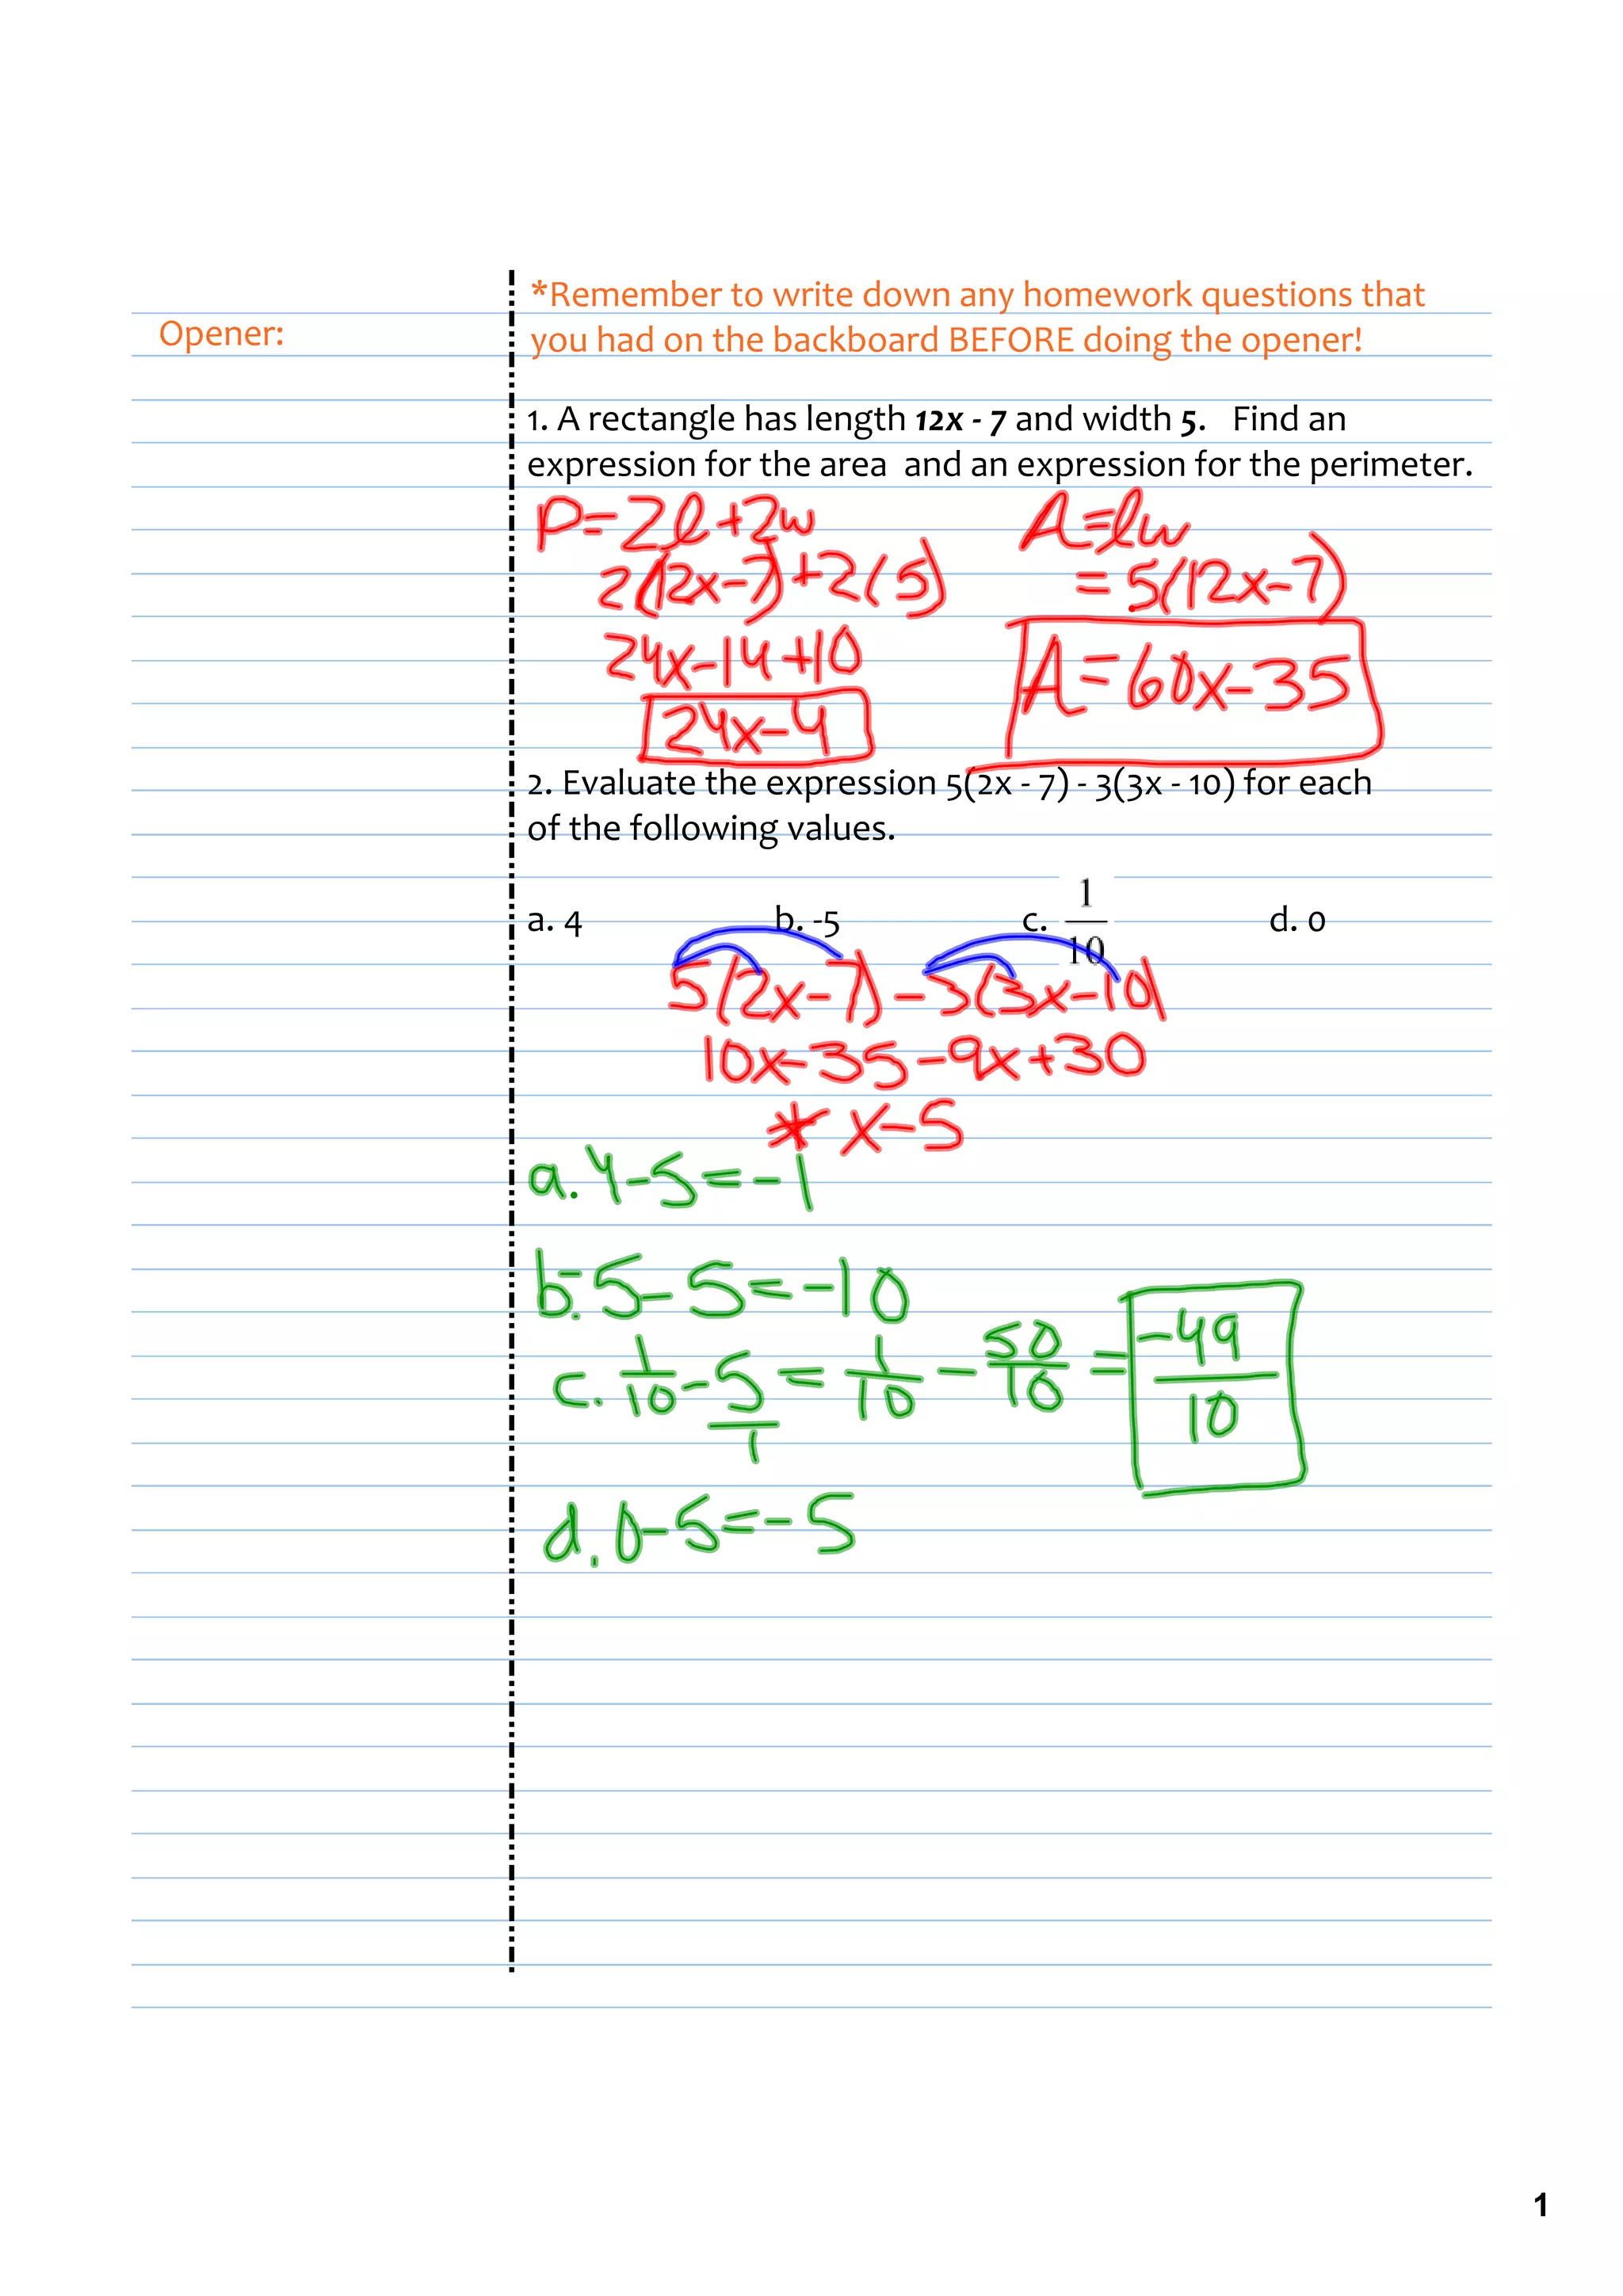 *Remember to write down any homework questions that
Opener:
you had on the backboard BEFORE doing the opener!
1. A rectangle has length 12x - 7 and width 5. Find an
expression for the area and an expression for the perimeter.
P=2l+2w
2(12x-7)+2(5)
24x-14+10
24x-4
A=lw
=5(12x-7)
A=60x-35
2. Evaluate the expression 5(2x - 7) - 3(3x - 10) for each
of the following values.
a. 4 b. -5 c. 1/10 d. 0
5(2x-7)-3(3x-10)
10x-35-9x+30
* x-5
a. 4-5=-1
b. -5-5=-10
c. 1/10-5/1=1/10-50/10=-49/10
d. 0-5=-5
1